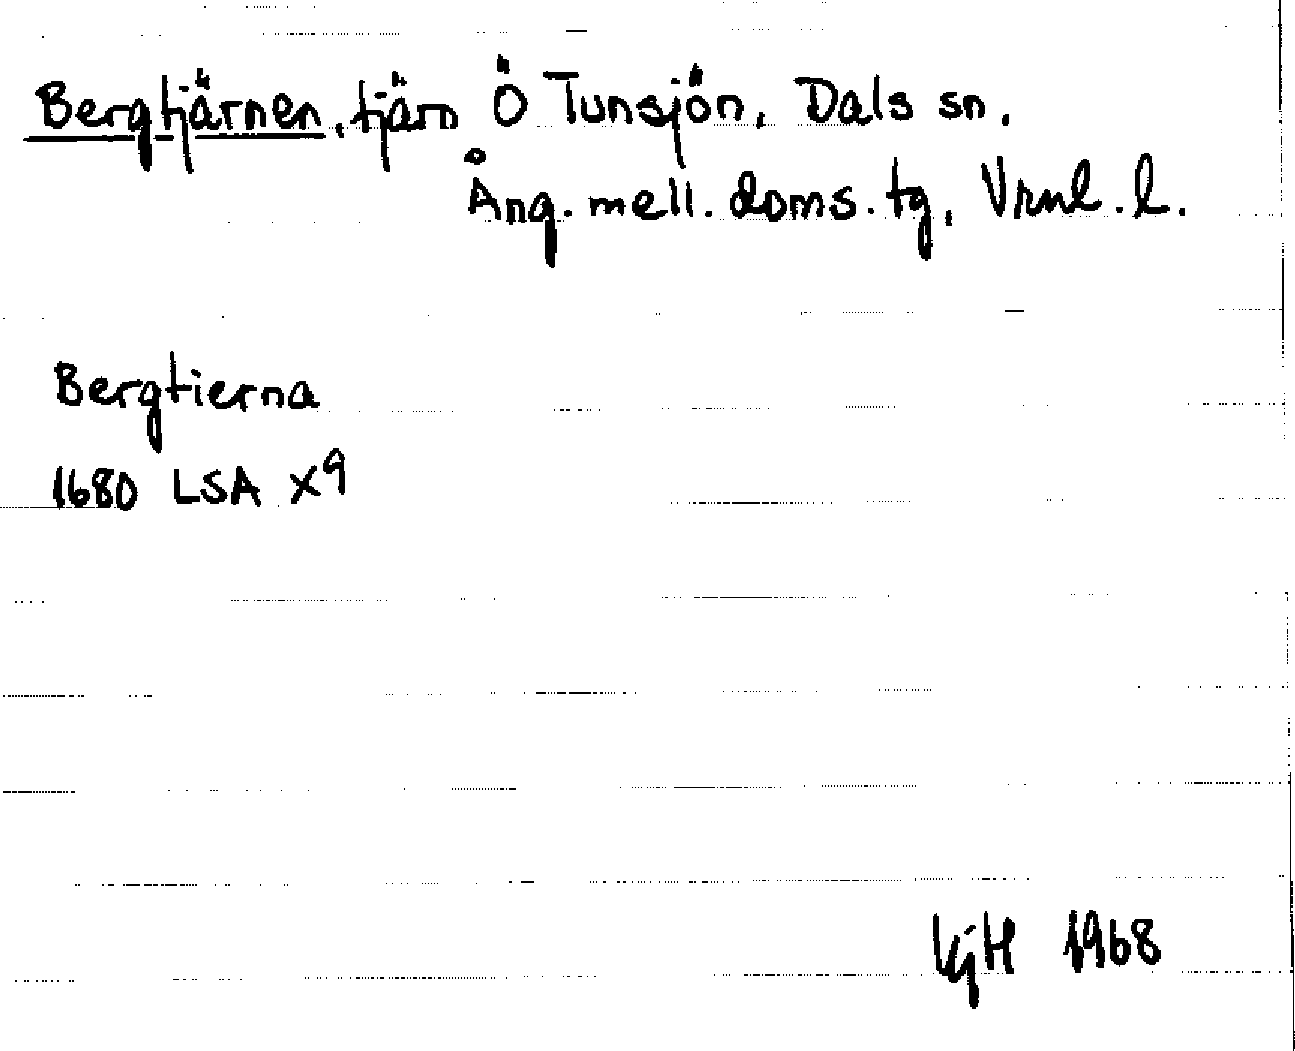 Bergtjärnen, tjärn Ö Tunsjön, Dals sn.
Ång. mell. doms. tg, Vrnl. l.
Bergtierna
1680 LSA X9
KjH 1968